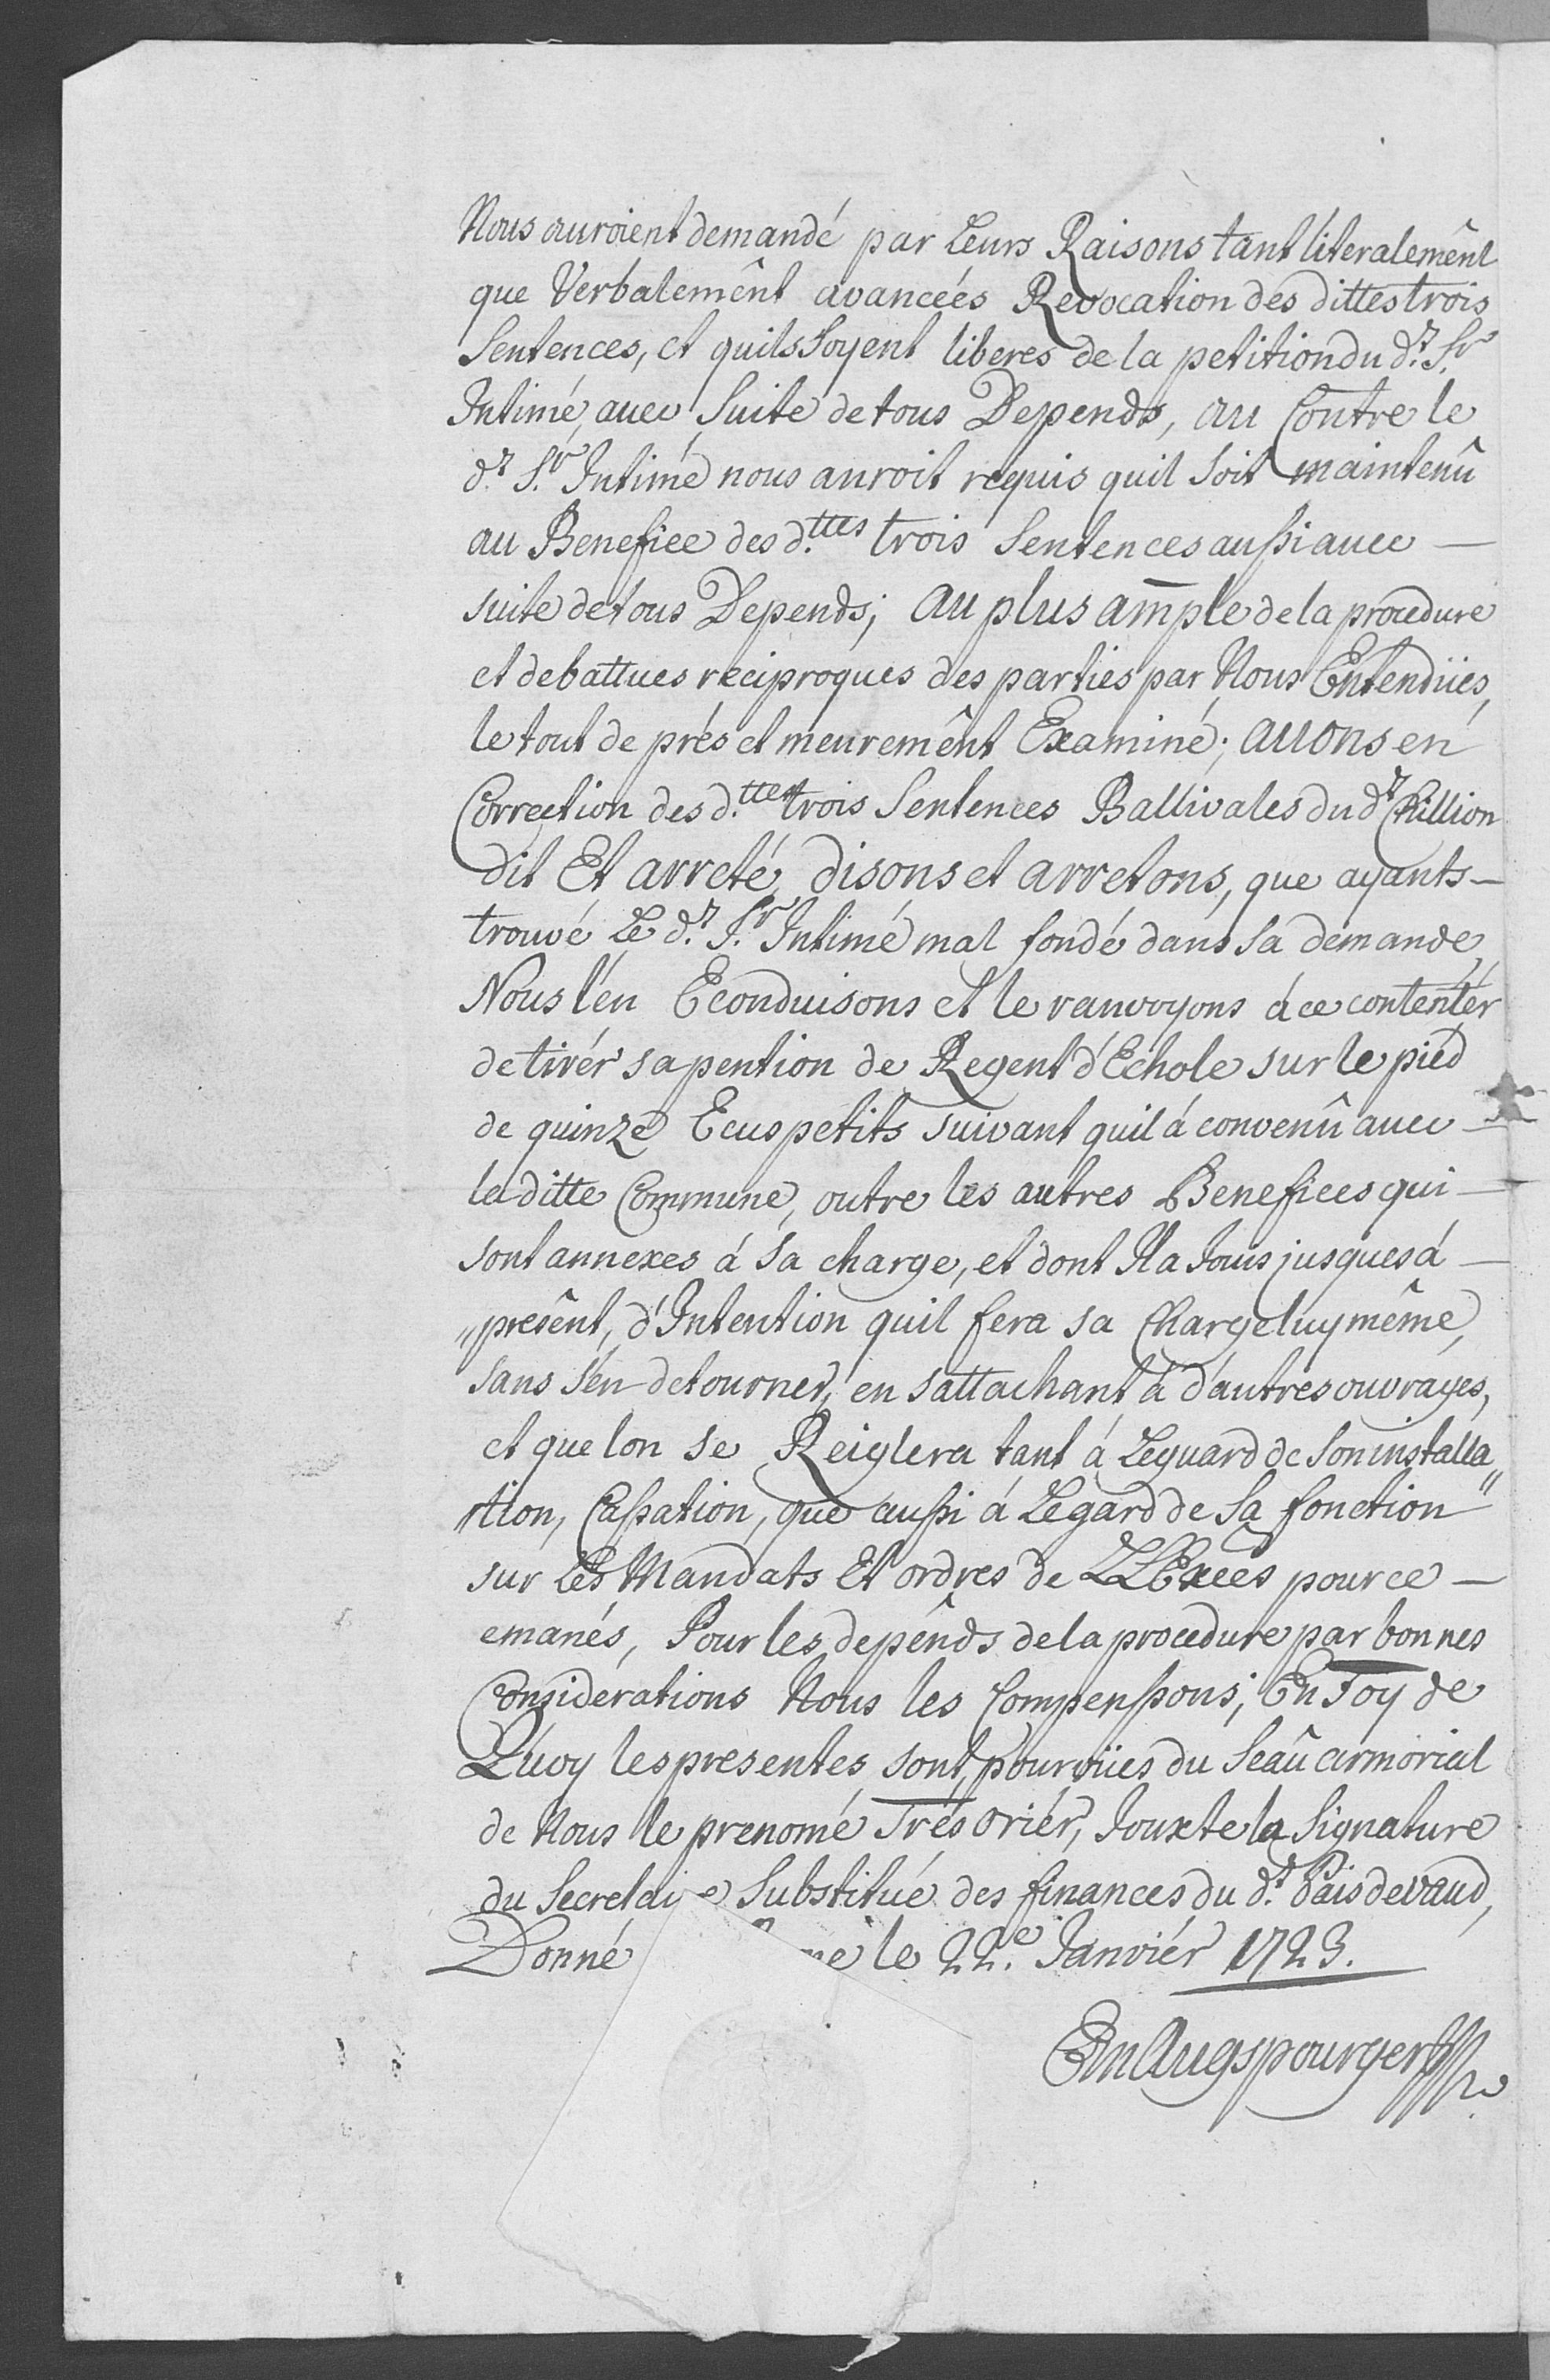 Nous auroient demandé par Leurs Raisons tant literalemênt
que Verbalemênt avanceés Revocation des dittes trois
Sentences, et quils soyent liberes de la petition du d.t S.r
Intimé, avec Suite de tous Depends, au Contre le
d.t S.r Intimé nous auroit requis quil soit maintenû
au Benefice des d.ttes trois Sentences aussi avec —
suite de tous Depends; au plus ample de la procedure
et debattues reciproques des parties par Nous Entendües,
le tout de prés et meuremênt Examiné; avons en
Correction des d.ttes trois Sentences Ballivales du d.t Chillion
dit Et arreté, disons et arretons, que ayants —
trouvé Le d.t S.r Intimé mal fondé dans sa demande,
Nous l'en Econduisons et le ranvoyons á ce contentér
de tirér sa pention de Regent d'Echole sur le pied
de quinze Ecus petits suivant quil á convenû avec —
la ditte Commune, outre les autres Benefices qui —
sont annexes á sa charge, et dont Il a Jouis jusques á —
„presênt, d'Intention quil fera sa Charge luy même,
sans s'en detourner, en s'attachant á d'autres ouvrages,
et que lon se Reiglera tant á Leguard de son installa„
„tion, Cassation, que aussi á Legard de sa fonction
sur Les Mandats Et ordres de LLExces pour ce —
emanés, Pour les depênds de la procedure par bonnes
Considerations Nous les Compenssons; En Foy de
Quoy les presentes sont, pourvües du Seaû armorial
de Nous le prenomé Trésoriér, Jouxte la Signature
du Secretaire Substitué des finances du d.t Païs de vaud,
Donné le 22.e Janviér 1723.
Em Augspourger